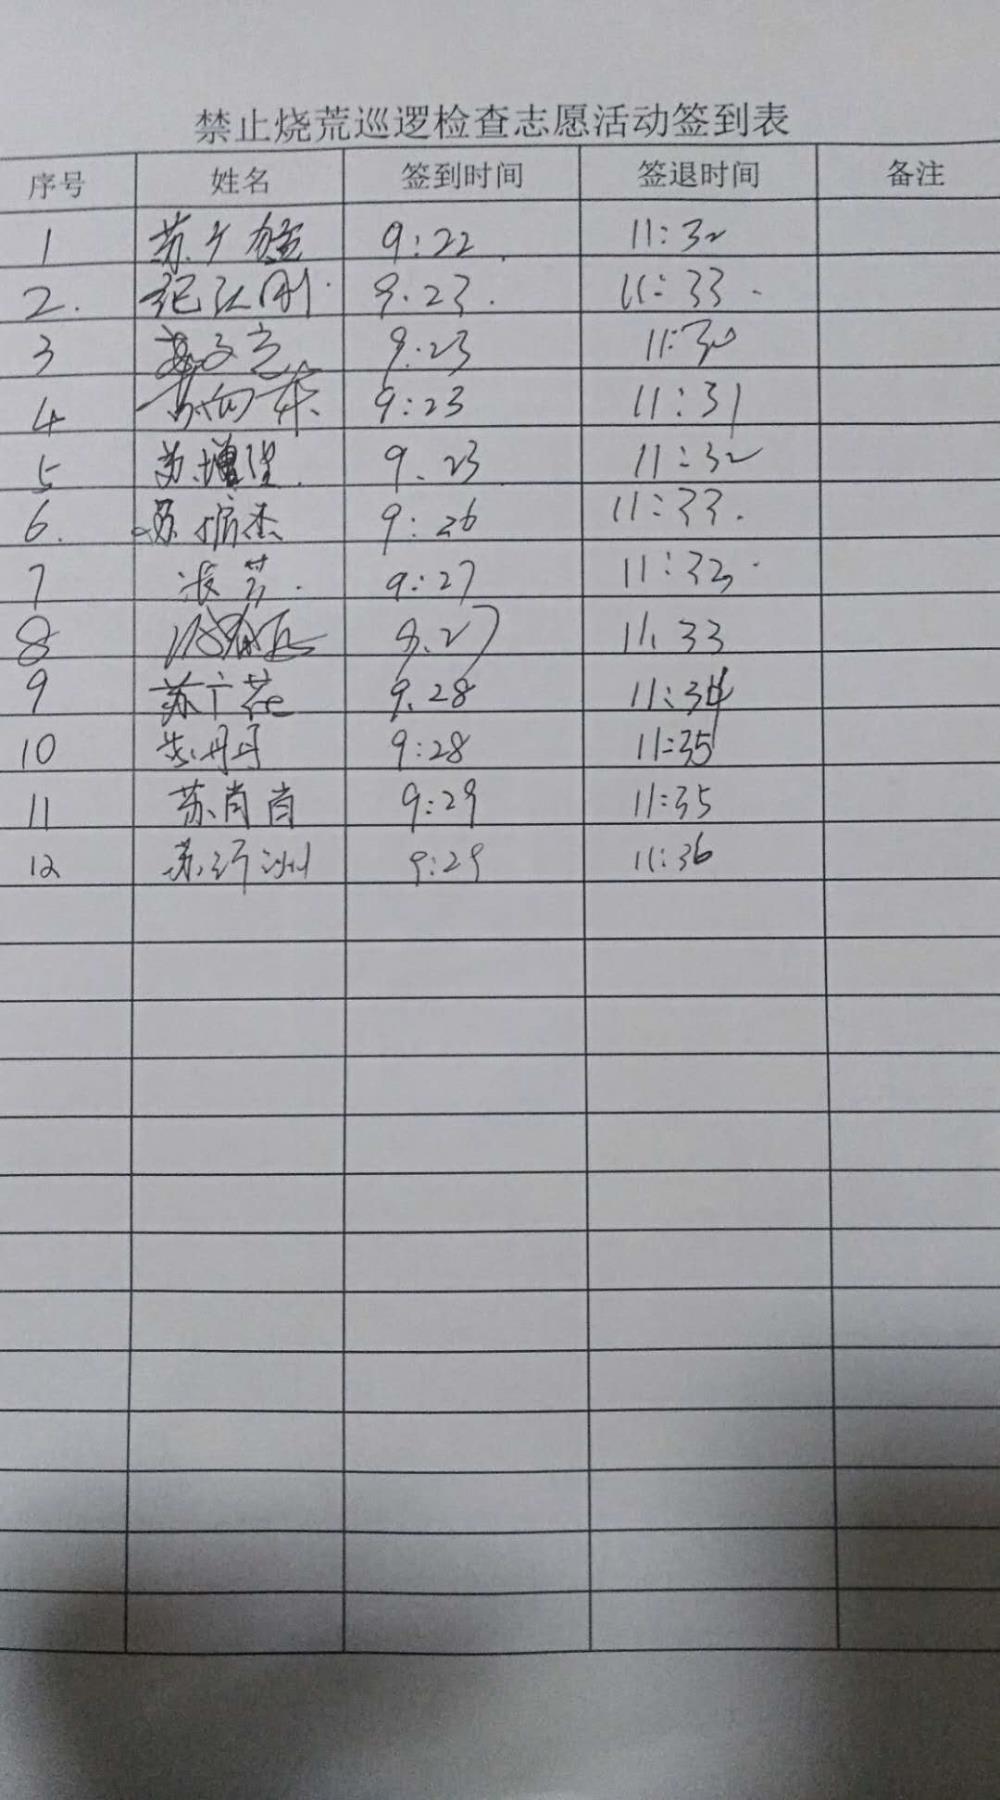 禁止烧荒巡逻检查志愿活动签到表
序号 姓名 签到时间 签退时间 备注
1 苏广 9:22 11:32
2. 纪江刚 9.23. 11:33.
3 9:23 11:30
4 苏向东 9:23 11:31
5 苏增 9.23 11:32
6. 苏 杰 9:26 11:33.
7 张芳. 9:27 11:33.
8 9.27 11.33
9 苏广花 9.28 11:34
10 丹丹 9:28 11:35
11 苏肖肖 9:29 11:35
12 苏 洲 9:29 11:36